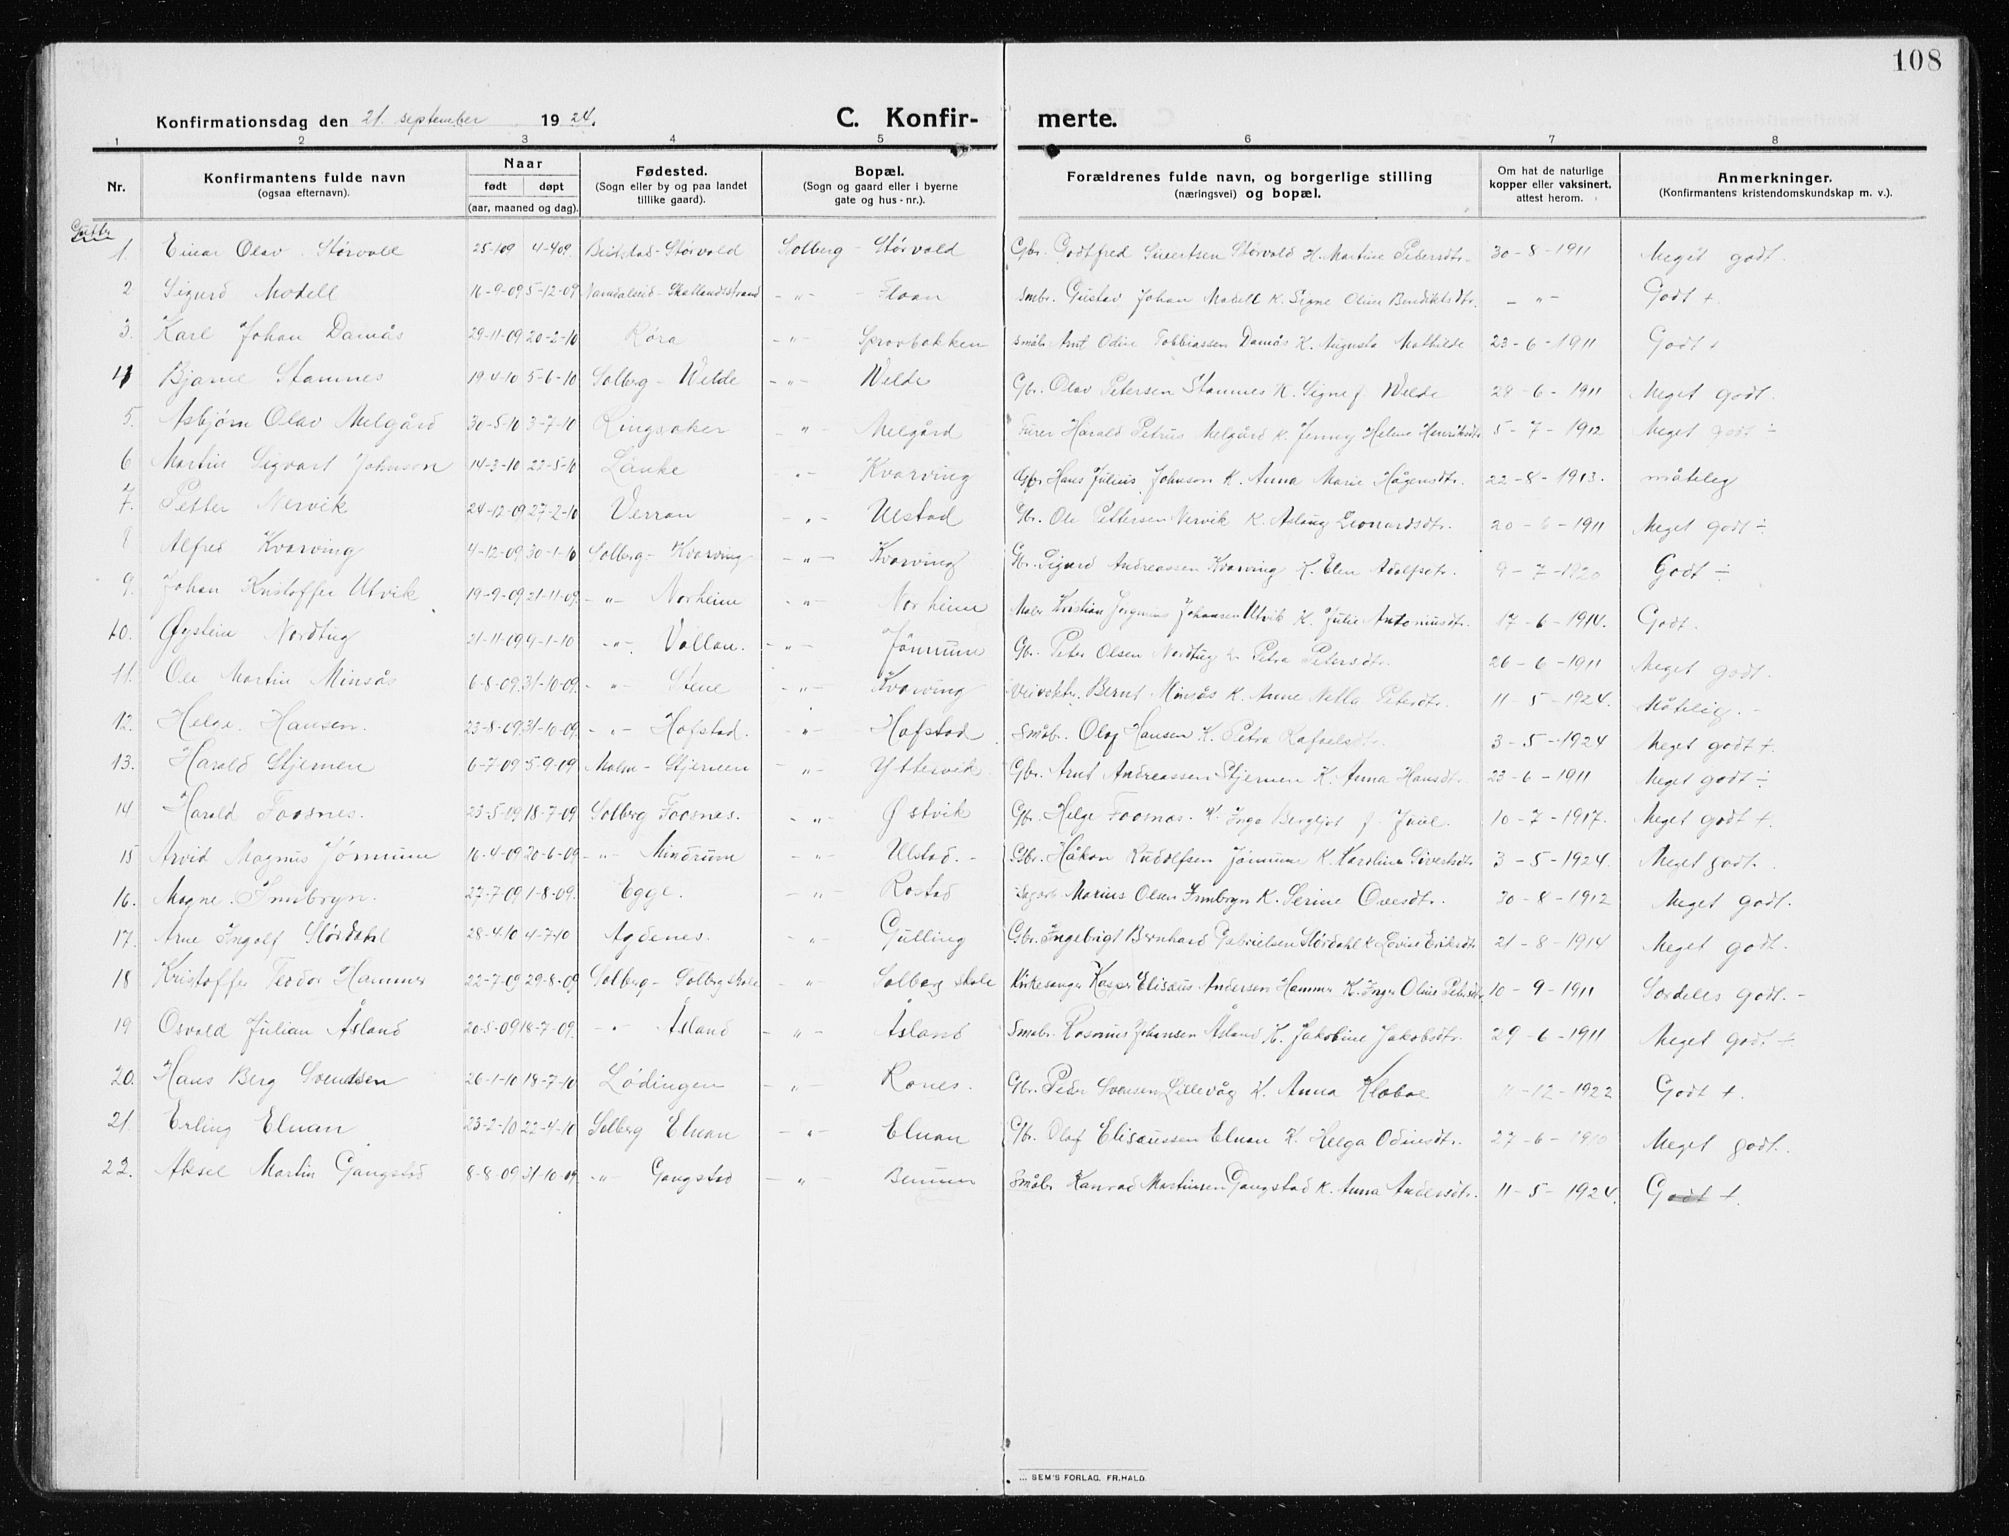 108
Konfirmationsdag den 21. september 1924.
C. Konfir- merte.
1 2 3 4 5 6 7 8
Nr. Konfirmantens fulde navn (ogsaa efternavn). Naar født døpt (aar, maaned og dag). Fødested. (Sogn eller by og paa landet tillike gaard). Bopæl. (Sogn og gaard eller i byerne gate og hus-nr.). Forældrenes fulde navn, og borgerlige stilling (næringsvei) og bopæl. Om hat de naturlige kopper eller vaksinert. attest herom. Anmerkninger. (Konfirmantens kristendomskundskap m. v.).
Gutter
1. Einar Olav Størvold 25-1-09 4-4-09. Beitstad - Størvold Solberg - Størvold Gbr. Godtfred Sivertsen Størvold H. Martine Petersdtr. 30-8-1911 Meget godt.
2 Sigurd Modell 16-9-09 5-12-09 Namdalseid - Skatlandsstrand -"- Floan Smbr. Gustav Johan Modell K. Signe Oline Bendiktsdtr. -"- Godt +
3. Karl Johan Damås 29-11-09 20-2-10 Røra -"- Sprovbakken Småbr. Arnt Odin Tobbiassen Damås K. Augusta Mathilde 23-6-1911 Godt +
4 Bjarne Stamnes 19-4-10 5-6-10 Solberg - Welde -"- Welde Gbr. Olav Petersen Stamnes K. Signe f. Welde 28-6-1911 Meget godt.
5. Asbjørn Olav Melgård 30-5-10 3-7-10 Ringsaker -"- Melgård Furer Harald Petrus Melgård K. Jenny Helene Henriksdtr 5-7-1912 Meget godt ÷
6 Martin Sigvart Johnson 14-3-10 23-5-10 Lånke -"- Kvarving Gbr Hans Julius Johnson K. Anna Marie Hågensdtr. 22-8-1913. måtelig
7. Petter Nervik 24-12-09 27-2-10 Verran -"- Ulstad Gbr. Ole Pettersen Nervik K. Aslaug Leonardsdtr. 20-6-1911 Meget godt ÷
8 Alfred Kvarving 4-12-09 30-1-10 Solberg - Kvarving -"- Kvarving Gbr. Sigurd Andreassen Kvarving K. Elen Adolfsdtr. 9-7-1920 Godt ÷
9. Johan Kristoffer Utvik 19-9-09 21-11-09. -"- Norheim -"- Norheim Maler Kristian Jørginius Johansen Utvik K. Julie Antoniusdtr. 17-6-1914. Godt.
10. Øystein Nordtug 21-11-09 9-1-10 -"- Vollan. -"- Jønnum Gbr. Peter Olsen Nordtug K. Petra Petersdtr. 26-6-1911 Meget godt.
11. Ole Martin Minsås 6-8-09 31-10-09. -"- Stene -"- Kvarving Veivokter. Bernt Minsås K. Anne Petersdtr. 11-5-1924. Måtelig. -
12. Helge Hansen. 23-8-09 31-10-09. -"- Hofstad. -"- Hofstad Småbr. Olaf Hansen K. Petra Rafaelsdtr. 3-5-1924 Meget godt +.
13. Harald Stjernen 6-7-09 5-9-09 Malm - Stjernen -"- Yttervik Gbr. Arnt Andreassen Stjernen K. Anna Hansdtr. 23-6-1911 Meget godt ÷
14 Harald Foosnes. 23-5-09 18-7-09 Solberg Foosnes. -"- Østvik Gbr. Helge Foosnæs. K. Inga Bergljot f. Juul. 10-7-1917. Meget godt +.
15 Arvid Magnus Jønnum 16-4-09 20-6-09 -"- Mindrum -"- Ulstad. - Gbr. Håkon Rudolfsen Jønnum K. Karoline Sivertsdtr 3-5-1924. Meget godt.
16. Magne Innbryn. 27-7-09 1-8-09. Egge. -"- Rostad Marius Olsen Innbryn K. Serine Ovesdtr. 30-8-1912 Meget godt.
17. Arne Ingolf Størdahl 28-4-10 4-7-10 Agdenes. -"- Gulling Gbr. Ingebrigt Bernhard Gabrielsen Størdahl K Lovise Eriksdtr 21-8-1914 Meget godt.
18 Kristoffer Teodor Hammer 22-7-09 29-8-09 Solberg - Solberg skole -"- Solberg skole Kirkesanger Kasper Elisæus Andersen Hammer K. Inger Oline Petersdtr. 10-9-1911 Særdeles godt. -
19 Osvald Julian Åsland 20-5-09 18-7-09. -"- Åsland -"- Åsland Småbr. Rasmus Johansen Åsland K. Jakobine Jakobsdtr. 29-6-1911 Meget godt ÷
20. Hans Berg Svendsen 26-1-10 18-7-10 Lødingen -"- Rones. Gbr. Peder Svensen Lillevåg K. Anna Klæboe -12-1922 Godt +.
21. Erling Elnan 23-2-10 22-4-10 Solberg Elnan -"- Elnan Gbr. Olaf Elisæussen Elnan K. Helga Odinsdtr. 27-6-1910 Meget godt.
22. Aksel Martin Gangstad 8-8-09 31-10-09 -"- Gangstad -"- Småbr Konrad Martinsen Gangstad K. Anna Andersdtr. 11-5-1924. Godt +.
SEM'S FORLAG, FR.HALD.